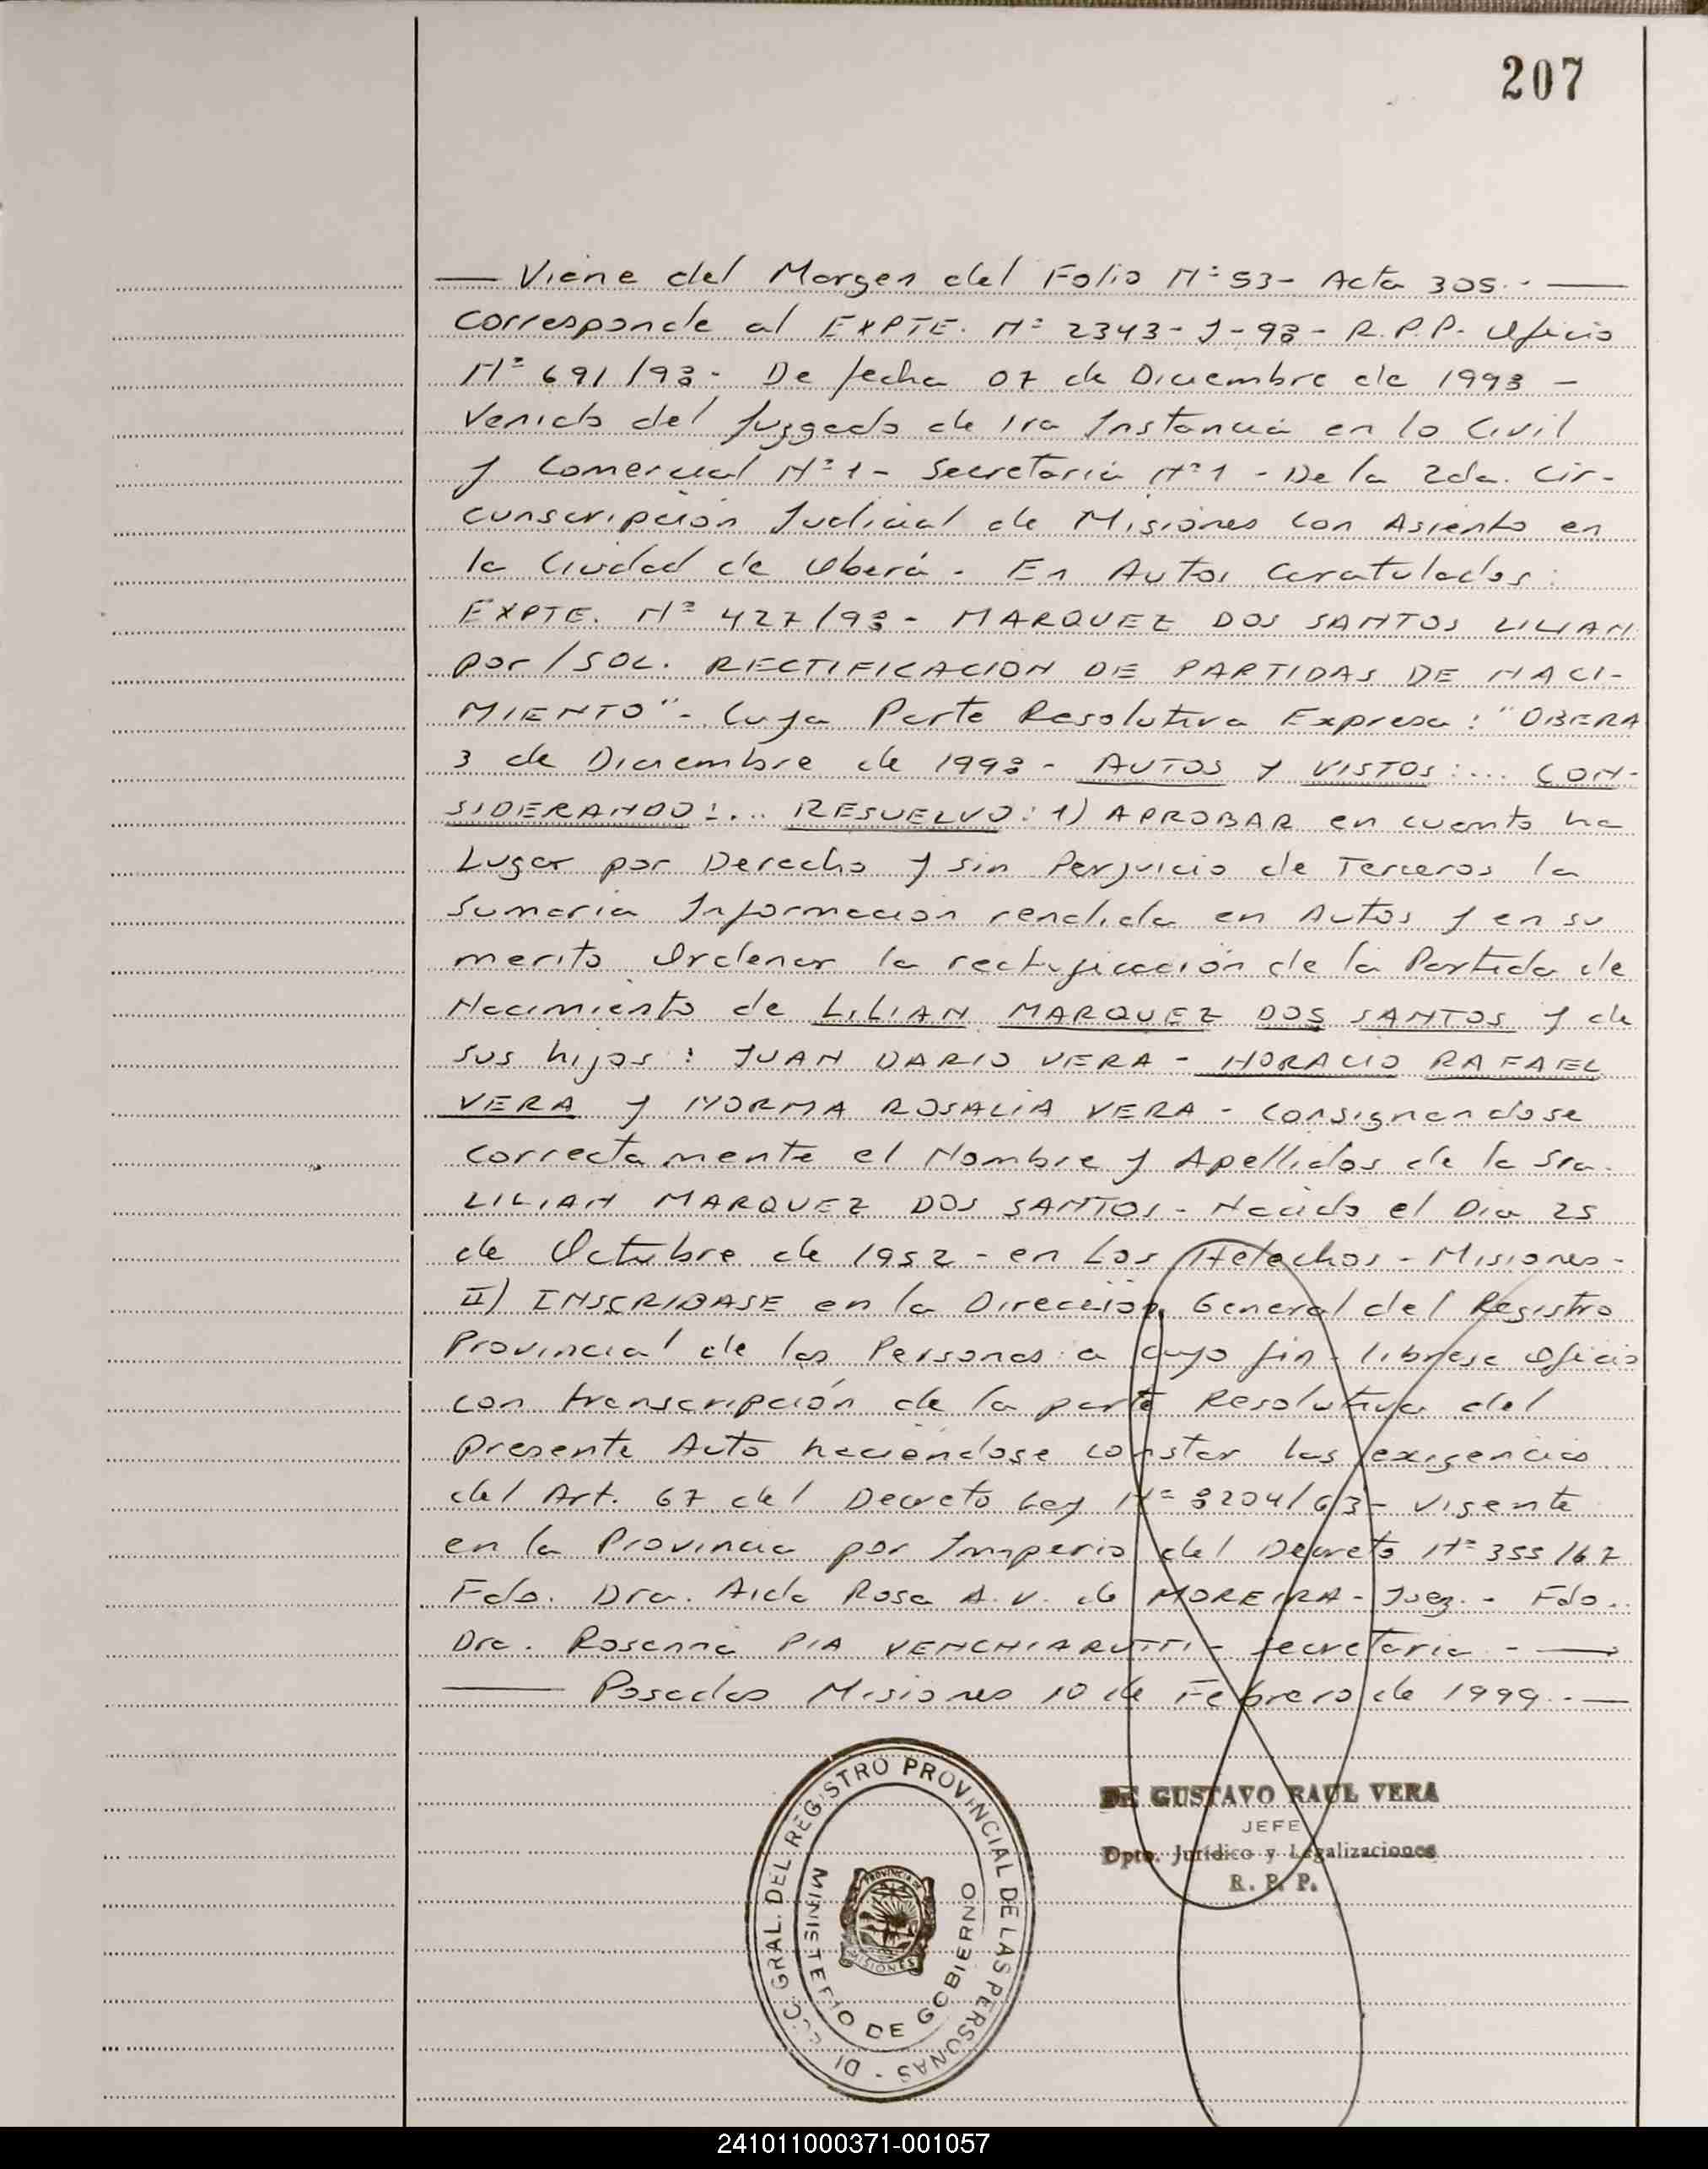 207
— Viene del Margen del Folio Nº 53- Acta 305.- —
Corresponde al EXPTE. Nº 2343-J-93- R.P.P. Oficio
Nº 691/93- De fecha 07 de Diciembre de 1993 -
Venido del Juzgado de 1ra Instancia en lo Civil
y Comercial Nº 1- Secretaria Nº 1 - De la 2da. Cir-
cunscripción Judicial de Misiones con Asiento en
la Ciudad de Oberá - En Autos Caratulados:
EXPTE. Nº 427/93- MARQUEZ DOS SANTOS LILIAN
por/SOL. RECTIFICACION DE PARTIDAS DE NACI-
MIENTO"- Cuya Parte Resolutiva Expresa: "OBERA
3 de Diciembre de 1993- AUTOS Y VISTOS:... CON-
SIDERANDO:... RESUELVO: 1) APROBAR en cuanto ha
Lugar por Derecho y sin Perjuicio de Terceros la
Sumaria Informacion rendida en Autos y en su
merito Ordenar la rectificación de la Partida de
Nacimiento de LILIAN MARQUEZ DOS SANTOS y de
sus hijos: JUAN DARIO VERA - HORACIO RAFAEL
VERA y NORMA ROSALIA VERA - Consignandose
correctamente el Nombre y Apellidos de la Sra.
LILIAN MARQUEZ DOS SANTOS- Nacido el Dia 25
de Octubre de 1952 - en Los Helechos - Misiones-
II) INSCRIBASE en la Dirección General del Registro
Provincial de las Personas a cuyo fin- librese oficio
con transcripción de la parte Resolutiva del
presente Auto haciéndose constar las exigencias
del Art. 67 del Decreto Ley Nº 8204/63- vigente
en la Provincia por Imperio del Decreto Nº 355/67
Fdo. Dra. Aida Rosa A. V. de MOREIRA- Juez. - Fdo.
Dra. Rosanna PIA VENCHIARUTTI- Secretaria. - —
— Posadas Misiones 10 de Febrero de 1999.- —
GUSTAVO RAUL VERA
JEFE
Dpto. Jurídico y Legalizaciones
R. P. P.
GRAL. DEL REGISTRO PROVINCIAL DE LAS PERSONAS - DI
MINISTERIO DE GOBIERNO
PROVINCIA DE
MISIONES
241011000371-001057